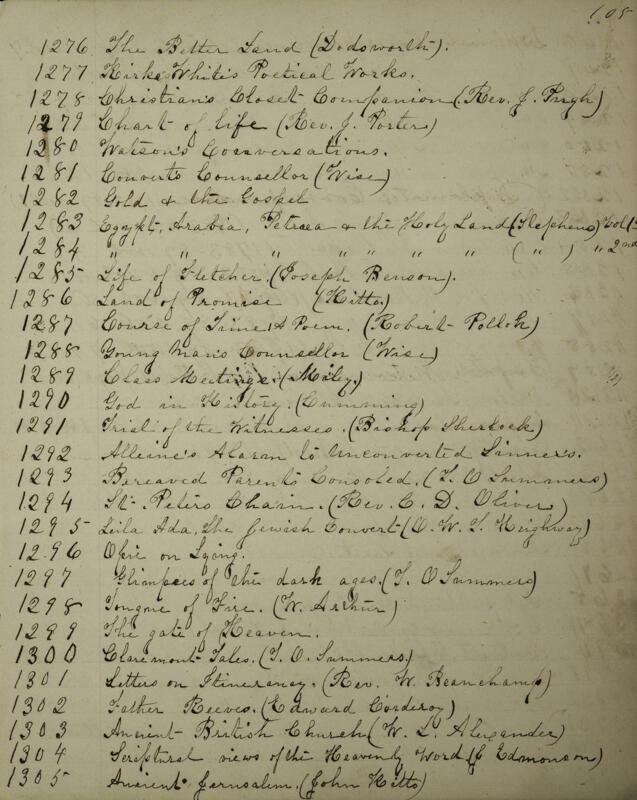 105
1276 The Better Land (Dodsworth).
1277 Kirke White's Poetical Works.
1278 Christian's Closet Companion (Rev. J. Pugh)
1279 Chart of life (Rev. J. Porter)
1280 Watson's Conversations.
1281 Converts Counsellor (Wise)
1282 Gold & the Gospel
1283 Egypt, Arabia, Petraea & the Holy Land (Stephens) Vol 1st
1284 " " " " " " " ( " ) " 2nd
1285 Life of Fletcher. (Joseph Benson).
1286 Land of Promise (Kitto.)
1287 Course of Time, A Poem. (Robert Pollok)
1288 Young Man's Counsellor (Wise)
1289 Class Meetings. (Miley.)
1290 God in History. (Cumming)
1291 Trial of the Witnesses. (Bishop Sherlock)
1292 Alleine's Alarm to Unconverted Sinners.
1293 Bereaved Parents Consoled. (T. O Summers)
1294 St. Peters Chain. (Rev. C. D. Oliver)
1295 Leila Ada, the Jewish Convert (O. W. T. Heighway)
1296 Opie on Lying.
1297 Glimpses of the dark ages. (T. O Summers)
1298 Tongue of Fire. (W. Arthur)
1299 The gate of Heaven.
1300 Claremont Tales. (T. O. Summers.)
1301 Letters on Itinerancy. (Rev. W. Beauchamp)
1302 Father Reeves. (Edward Corderoy)
1303 Ancient British Church (W. L. Alexander)
1304 Scriptural views of the Heavenly Word (J Edmonson)
1305 Ancient Jerusalem. (John Kitto)